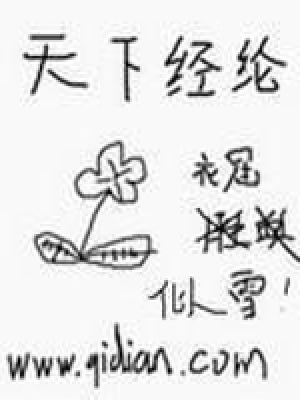 天下经纶
衣冠
似雪！
www.qidian.com